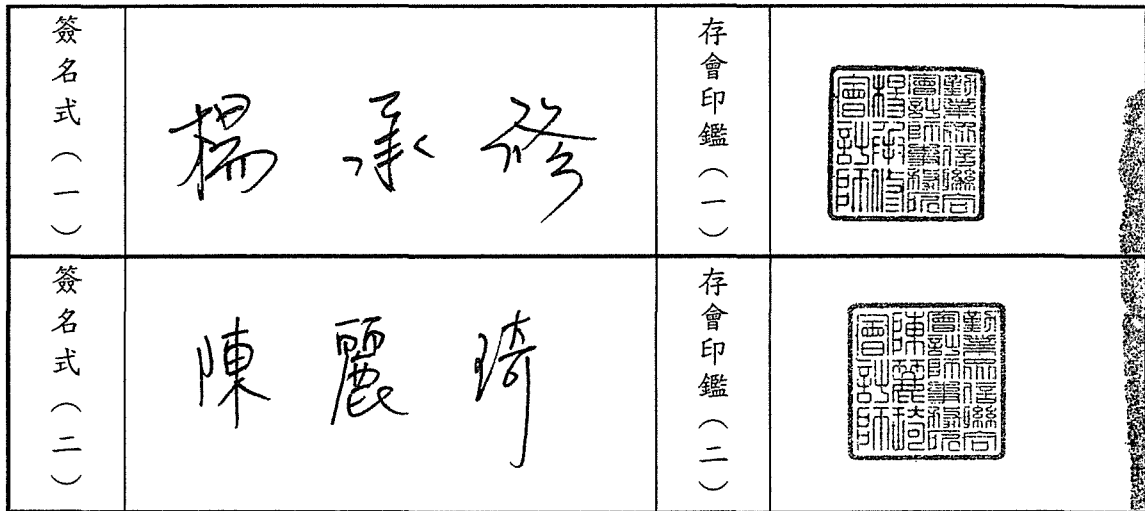 簽名式（一）
楊承修
存會印鑑（一）
勤業眾信聯合
會計師事務所
楊承修
會計師
簽名式（二）
陳麗琦
存會印鑑（二）
勤業眾信聯合
會計師事務所
陳麗琦
會計師